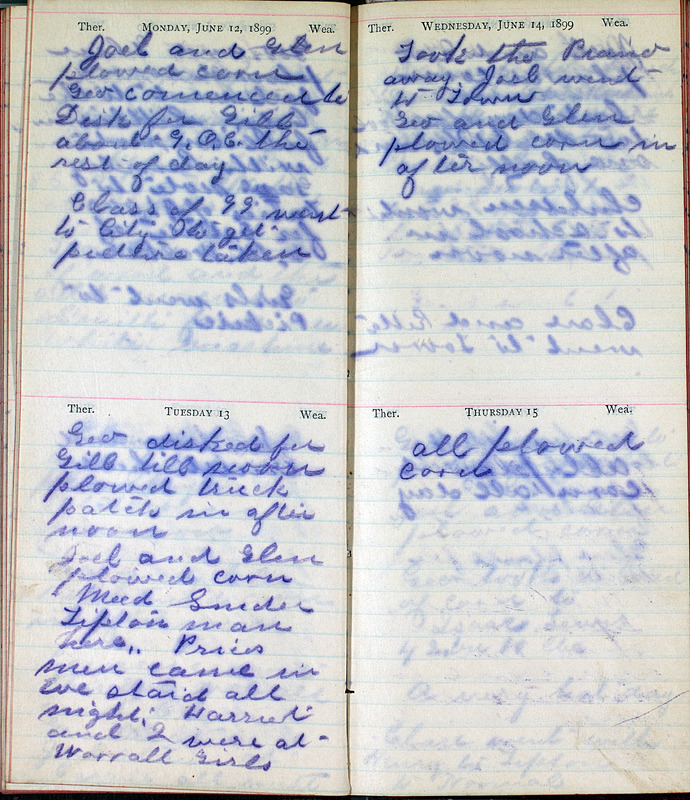 Ther. Monday, June 12, 1899 Wea.
Joel and Glen
plowed corn
Geo comenced to
Disk for Gibb
about 9. O.C. the
rest of day
Class of 99 went
to City to get
picture taken
Ther. Tuesday 13 Wea.
Geo disked for
Gibb till noon
plowed truck
patch in after
noon
Joel and Glen
plowed corn
Meed Snider
Tipton man
here. Prices
men came in
eve staid all
night. Harriet
and I were at
Worrall Girls
Ther. Wednesday, June 14, 1899 Wea.
Took the Piano
away Joel went
to Town
Geo and Glen
plowed corn in
after noon
Ther. Thursday 15 Wea.
all plowed
corn